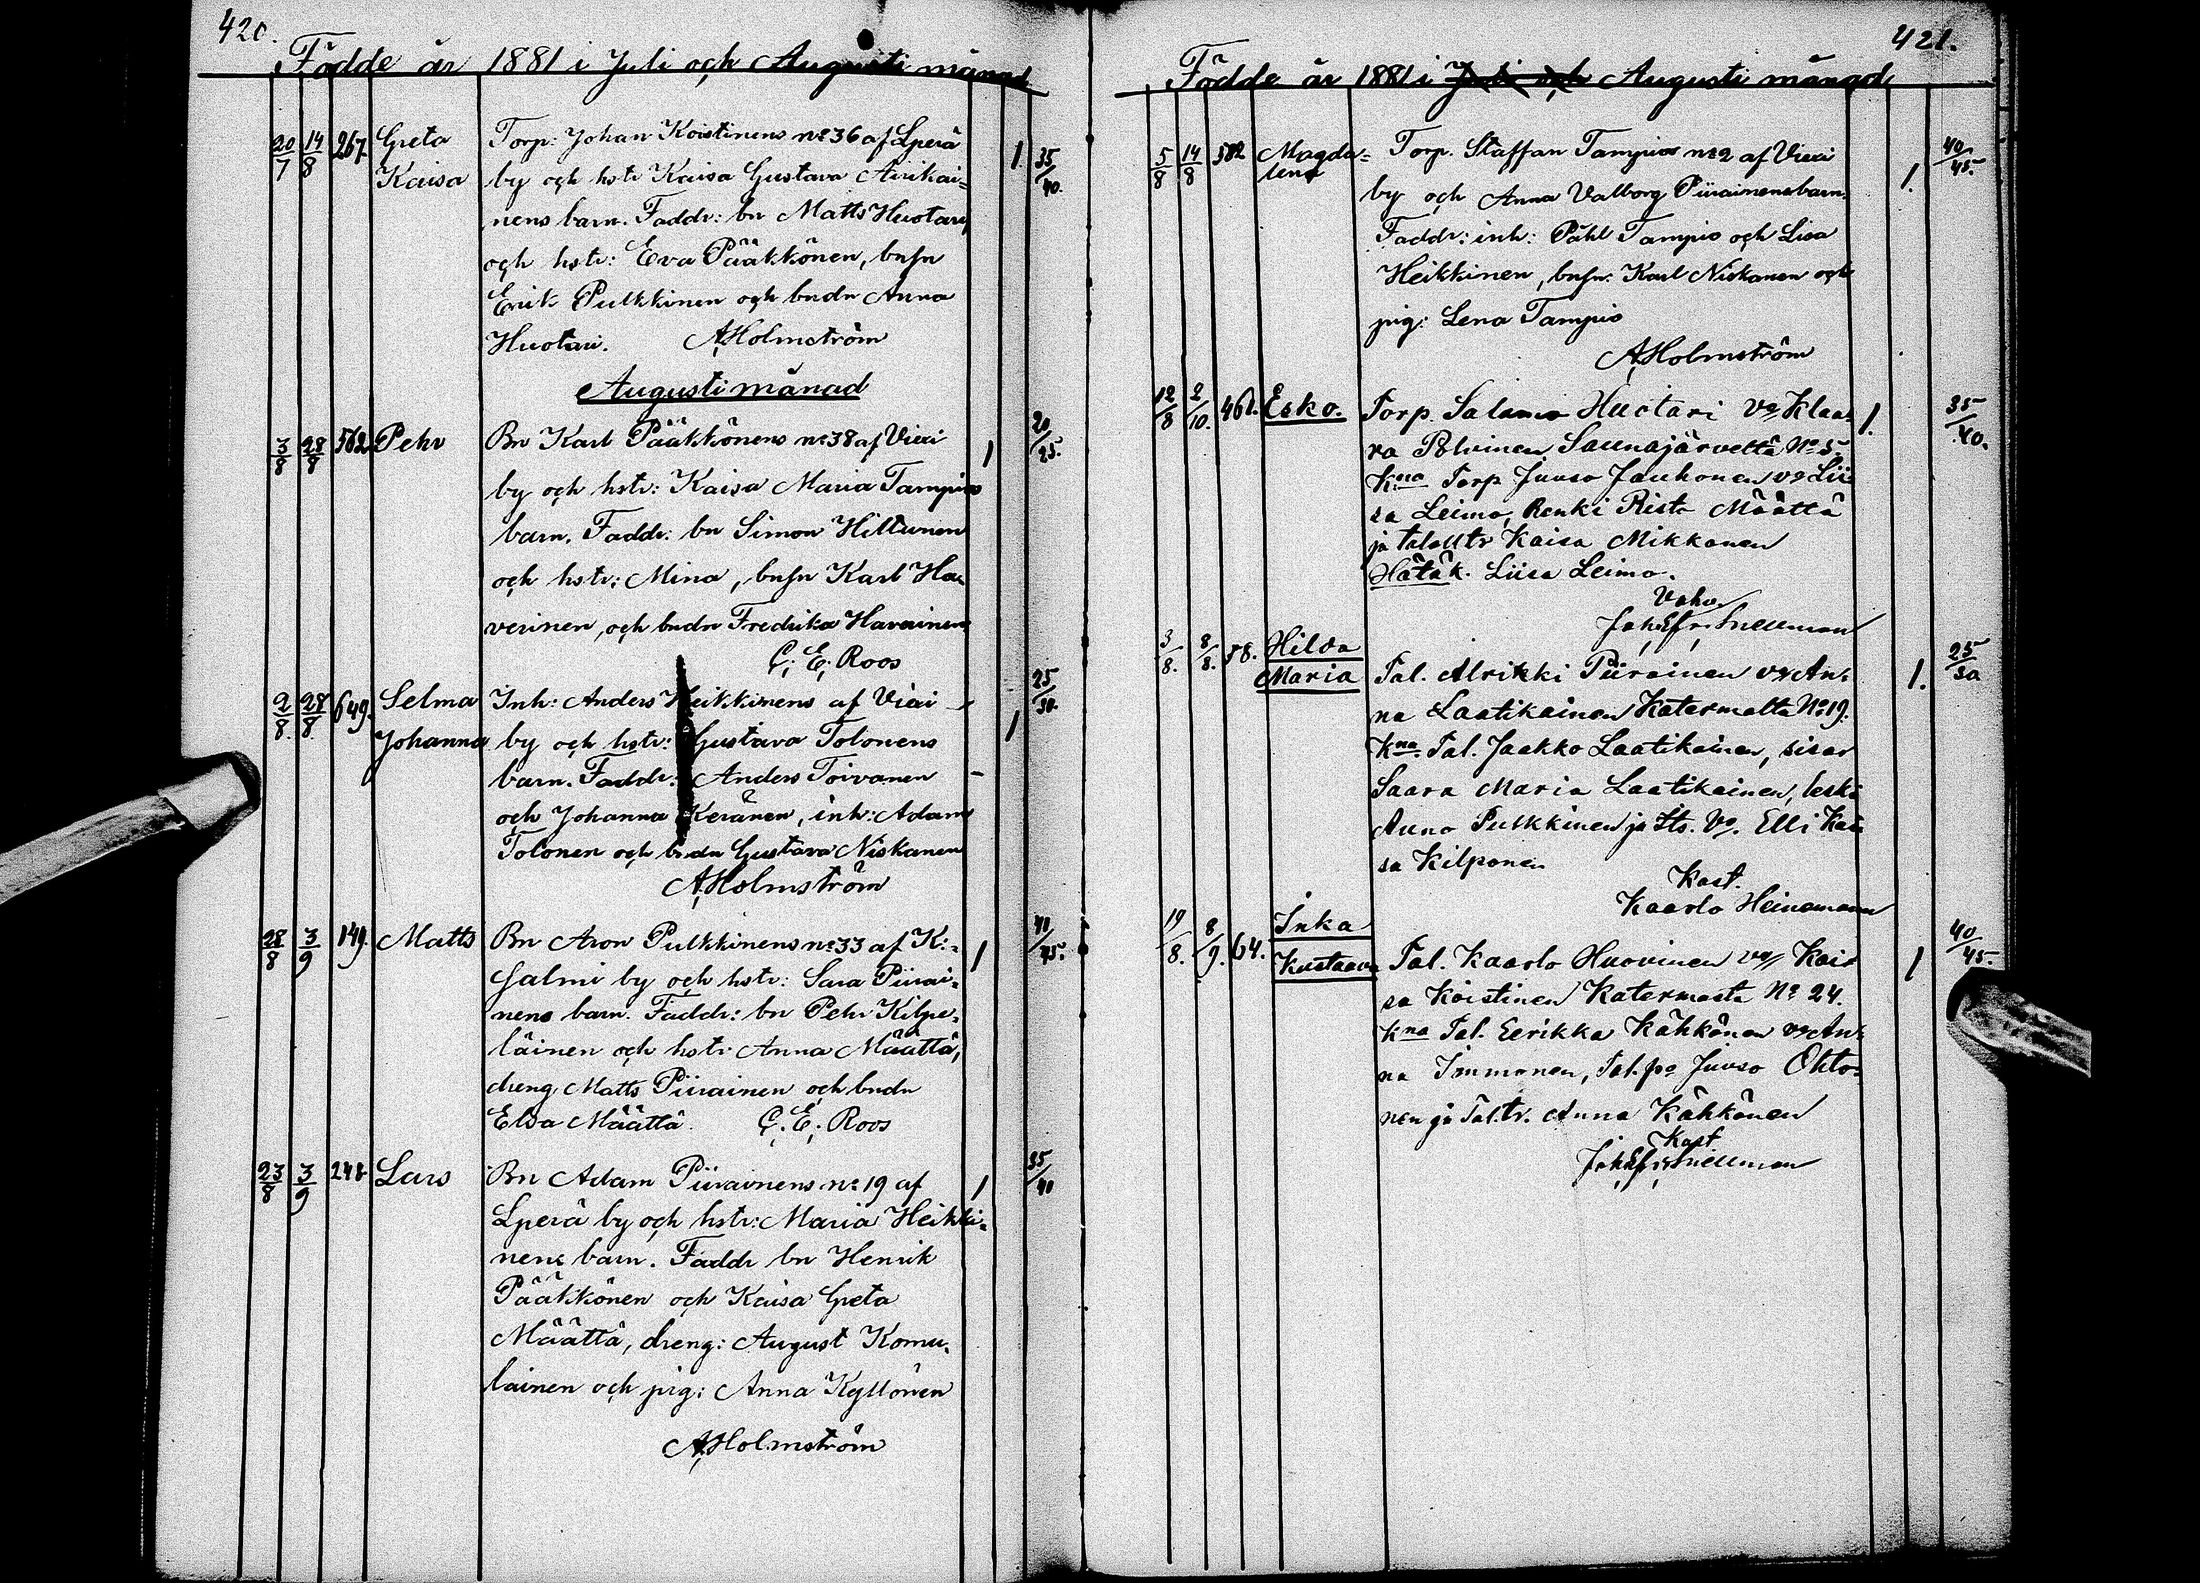 420.
Födde år 1881 i Juli och Augusti månad
20/7 14/8 267 Greta Torp: Johan Koistinens no 36 af Lperä 1 35/40.
Kaisa by och hstr Kaisa Gustava Airikai=
nens barn. Faddr: bn Matts Huotari
och hstr: Eva Pääkkönen, bnsn
Erik Pulkkinen och bndr Anna
Huotari. A Holmström
Augusti månad
3/8 28/8 562 Pehr Bn Karl Pääkkönens no 38 af Viexi 1 20/25.
by och hstr: Kaisa Maria Tampios
barn. Faddr: bn Simon Hiltunen
och hstr: Mina, bnsn Karl Ha=
verinen, och bndr Fredrika Haverinen
C. E. Roos
2/8. 28/8 649. Selma Inh: Anders Heikkinens af Viexi 1 25/30.
Johanna by och hstr: Gustava Tolonens
barn. Faddr: Anders Toivanen
och Johanna Keränen, inh: Adam
Tolonen och bndr Gustava Niskanen
A Holmström
28/8 3/9 149. Matts Bn Aron Pulkkinens no 33 af K:= 1 41/45.
Salmi by och hstr: Sara Piirai=
nens barn. Faddr: bn Pehr Kilpe=
läinen och hstr Anna Määttä,
dreng Matts Piirainen och bndr
Elsa Määttä. C. E. Roos
23/8 3/9 248 Lars Bn Adam Piirainens no 19 af 1 35/40
Lperä by och hstr: Maria Heikki=
nens barn. Faddr bn Henrik
Pääkkönen och Kaisa Greta
Määttä, dreng: August Komu=
lainen och pig: Anna Kyllönen
A Holmström
421.
Födde år 1881 i Juli och Augusti månad
5/8 14/8 582 Magda= Torp. Staffan Tampios no 2 af Viexi 1. 40/45.
lena by och Anna Valborg Piirainens barn.
Faddr: inh: Påhl Tampio och Lisa
Heikkinen, bnsn: Karl Niskanen och
pig: Lena Tampio
A Holmström
12/8 2/10. 461. Esko. Torp. Salamo Huotari vo Klaa= 1. 35/40.
ra Polvinen Saunajärveltä No 5.
Kna Torp Juuso Jauhonen vo Lii=
sa Leimo, Renki Risto Määttä
ja taloltr Kaisa Mikkonen
Hätäk. Liisa Leimo.
Vahv.
Joh. Efr. Snellman
3/8. 8/8. 58. Hilda
Maria Tal. Alrikki Piirainen vo An= 1. 25/30
na Laatikainen Katermalta No 19.
Kna Tal. Jaakko Laatikainen, sisar
Saara Maria Laatikainen, leski
Anno Pulkkinen ja Its. Vo. Elli Kai
sa Kilponen
Kast.
Kaarlo Heinemann
19/8. 8/9. 64. Inka
Kustaava Tal. Kaarlo Huovinen vo Kai= 1 40/45.
sa Koistinen Katermasta No 24.
Kna Tal. Eerikka Kähkönen vo An=
na Immonen, Tal.po Juuso Ohto=
nen ja Tal.tr. Anna Kähkönen
Kast
Joh. Efr. Snellman